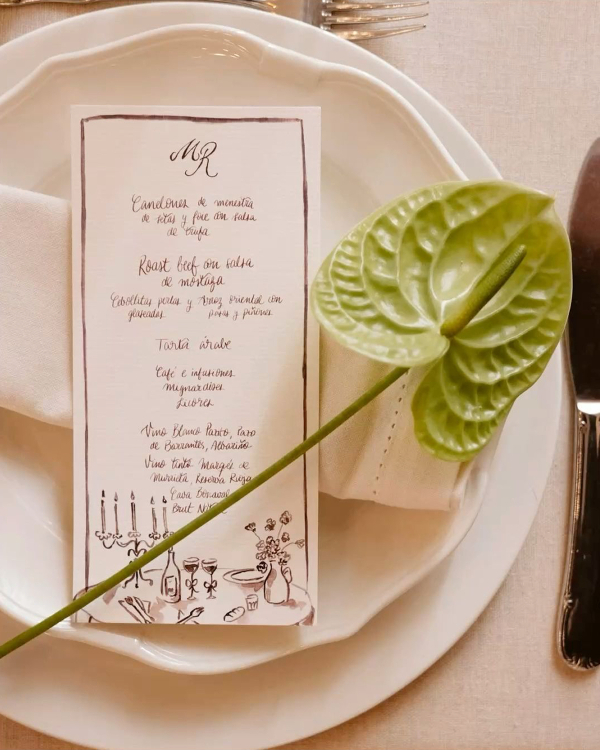 MR
Canelones de menestra
de setas y foie con salsa
de trufa
Roast beef con salsa
de mostaza
Cebollitas perlas y Arroz oriental con
glaseadas pasas y piñones
Tarta árabe
Café e infusiones
mignardises
Licores
Vino Blanco Pazo
de Barrantes, Albariño
Vino tinto Marqués de
Murrieta, Reserva Rioja
Cava
Brut